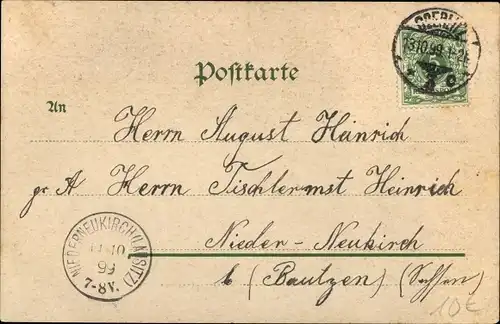 Postkarte
An
Herrn August Heinrich
gr A Herrn Tischlermst Heinrich
Nieder-Neukirch
b (Bautzen) (Sachsen)
NIEDERNEUKIRCH (LAUSITZ)
10
99
7-8V.
10 99 1-2
10€